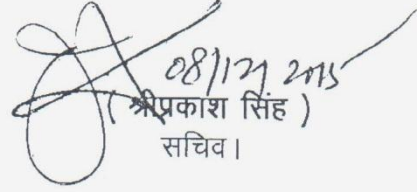 08/12/2015
( श्रीप्रकाश सिंह )
सचिव।